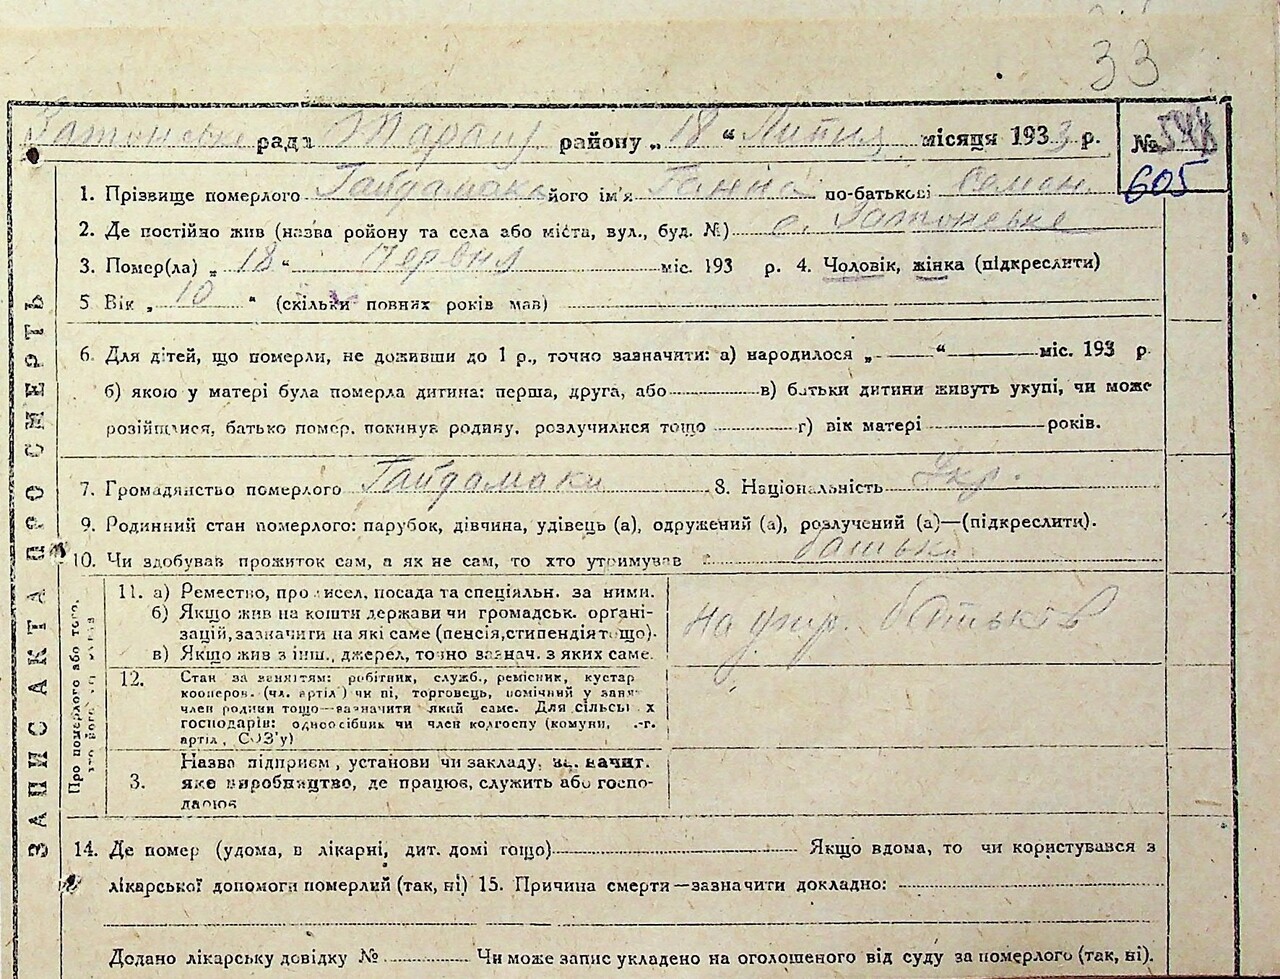 33
Затонське рада Таращ району „18“ Липня місяця 1933 р. №
605
1. Прізвище померлого Гайдамака його ім'я Ганна по-батькові Семен.
2. Де постійно жив (назва ройону та села або міста, вул., буд. №) с. Затонське
3. Помер(ла) „18“ Червня міс. 193 р. 4. Чоловік, жінка (підкреслити)
5 Вік „10“ (скільки повних років мав)
6. Для дітей, що померли, не доживши до 1 р., точно зазначити: а) народилося „ “ міс. 193 р.
б) якою у матері була померла дитина: перша, друга, або в) батьки дитини живуть укупі, чи може
розійшлися, батько помер, покинув родину, розлучилися тощо г) вік матері років.
7. Громадянство померлого Гайдамака 8. Національність Укр.
9. Родинний стан померлого: парубок, дівчина, удівець (а), одружений (а), розлучений (а)—(підкреслити).
10. Чи здобував прожиток сам, а як не сам, то хто утримував батьки
ЗАПИС АКТА ПРО СМЕРТЬ
Про померлого або того,
11. а) Ремество, про исел, посада та спеціальн. за ними.
б) Якщо жив на кошти держави чи громадськ. органі-
зацій, зазначити на які саме (пенсія, стипендія тощо).
в) Якщо жив з інш., джерел, точно зазнач. з яких саме.
на утр. батьків
12. Стан за заняттям: робітник, служб., ремісник, кустар
кооперов. (чл. артіл) чи ні, торговець, помічний у заня-
член родини тощо—зазначити який саме. Для сільсь х
господарів: одноосібник чи член колгоспу (комуни, .-г.
артіл, СОЗ'у)
3. Назва підприєм, установи чи закладу, за начит.
яке виробництво, де працює, служить або госпо-
дарює
14. Де помер (удома, в лікарні, дит. домі тощо) Якщо вдома, то чи користувався з
лікарської допомоги померлий (так, ні) 15. Причина смерти—зазначити докладно:
Додано лікарську довідку № Чи може запис укладено на оголошеного від суду за померлого (так, ні).